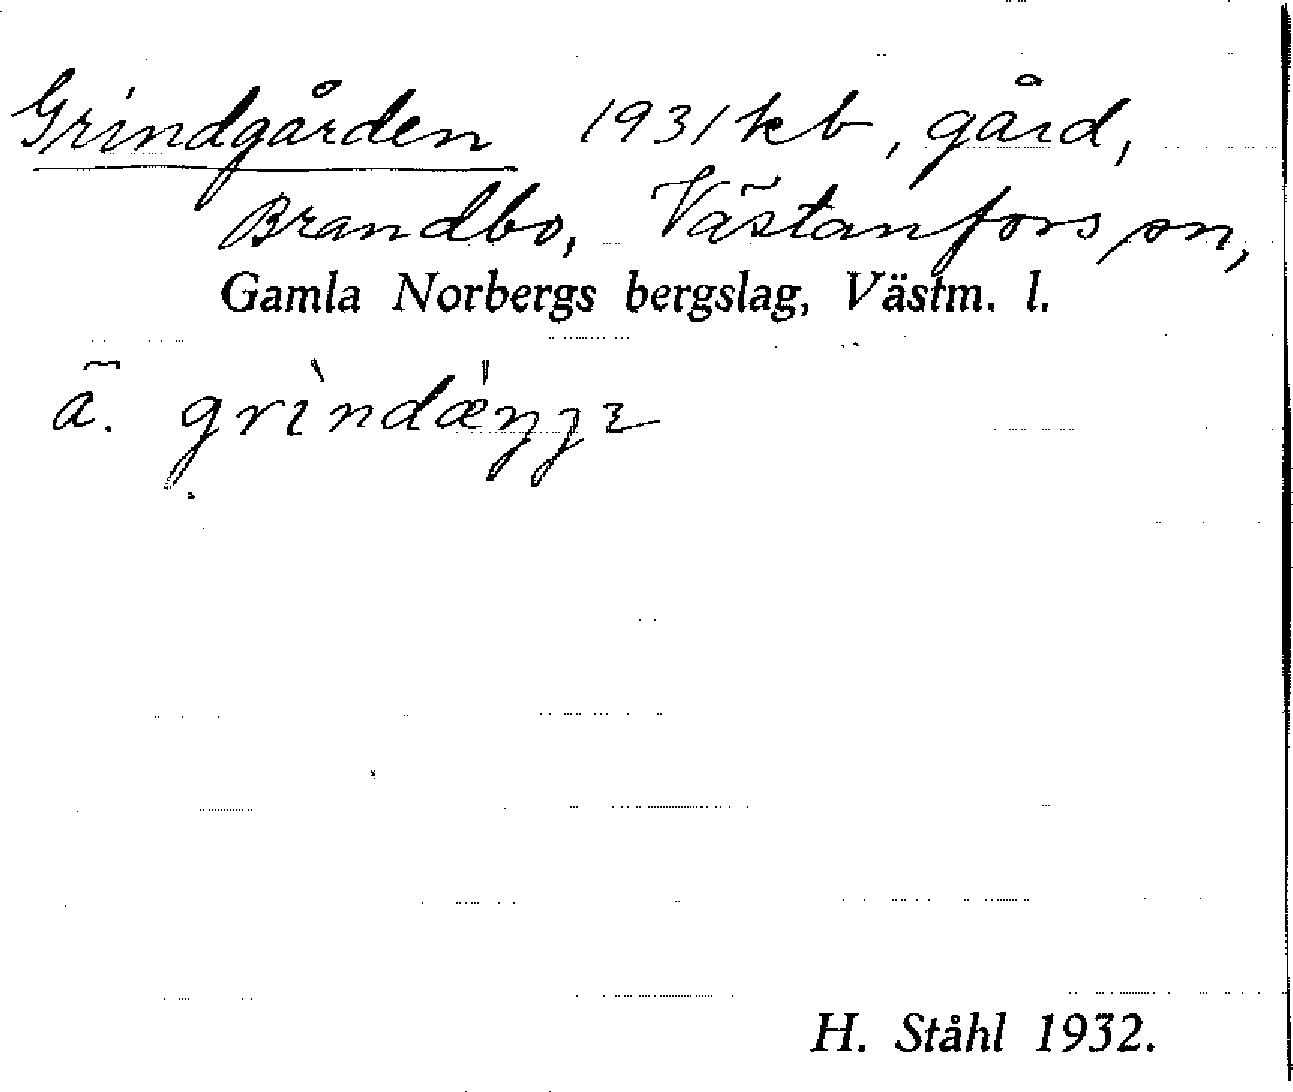 Grindgården 1931 kb, gård,
Brandbo, Västanfors sn,
Gamla Norbergs bergslag, Västm. l.
ã.
H. Ståhl 1932.